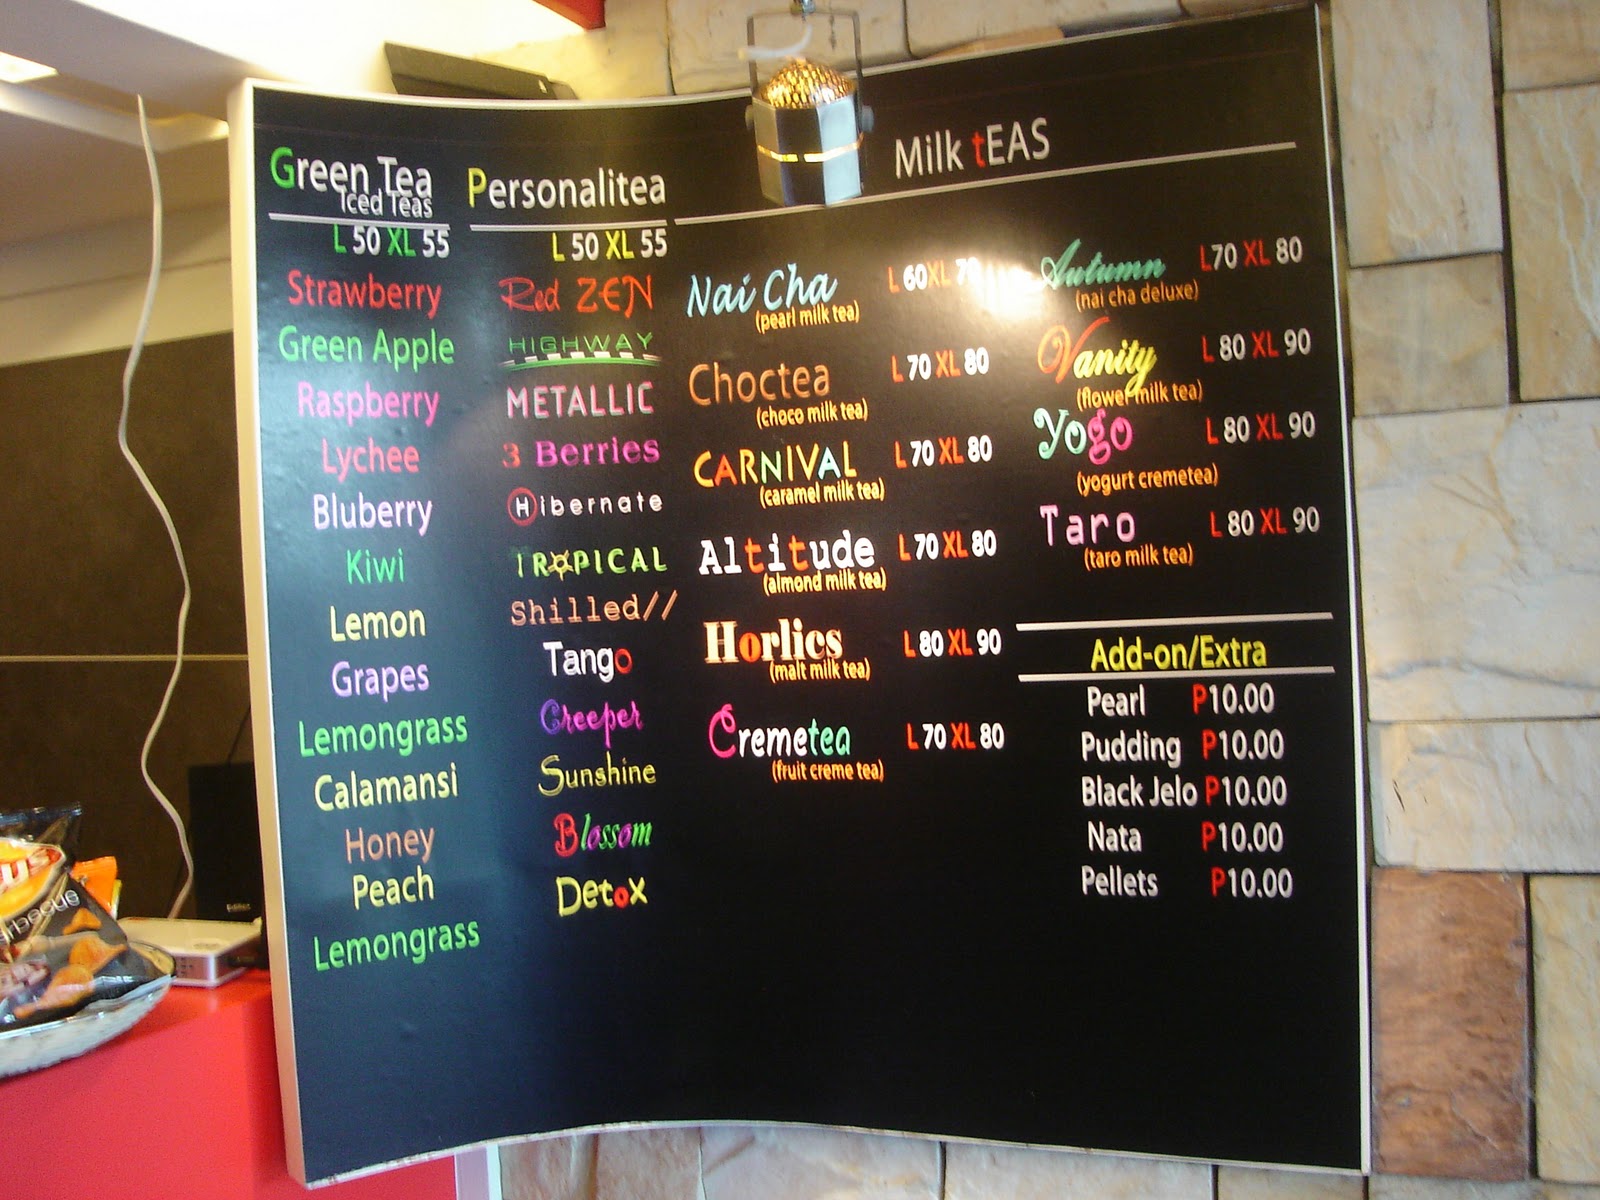 Green Tea
Iced Teas
L 50 XL 55
Strawberry
Green Apple
Raspberry
Lychee
Bluberry
Kiwi
Lemon
Grapes
Lemongrass
Calamansi
Honey
Peach
Lemongrass
Personalitea
L 50 XL 55
Red ZEN
HIGHWAY
METALLIC
3 Berries
Hibernate
TROPICAL
Shilled//
Tango
Creeper
Sunshine
Blossom
Detox
Milk tEAS
Nai Cha L 60 XL 70
(pearl milk tea)
Choctea L 70 XL 80
(choco milk tea)
CARNIVAL L 70 XL 80
(caramel milk tea)
Altitude L 70 XL 80
(almond milk tea)
Horlics L 80 XL 90
(malt milk tea)
Cremetea L 70 XL 80
(fruit creme tea)
Autumn L70 XL 80
(nai cha deluxe)
Vanity L 80 XL 90
(flower milk tea)
Yogo L 80 XL 90
(yogurt cremetea)
Taro L 80 XL 90
(taro milk tea)
Add-on/Extra
Pearl P10.00
Pudding P10.00
Black Jelo P10.00
Nata P10.00
Pellets P10.00